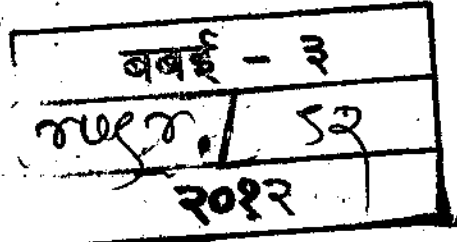 बबई - ३
४७९४ / ८२
२०१२